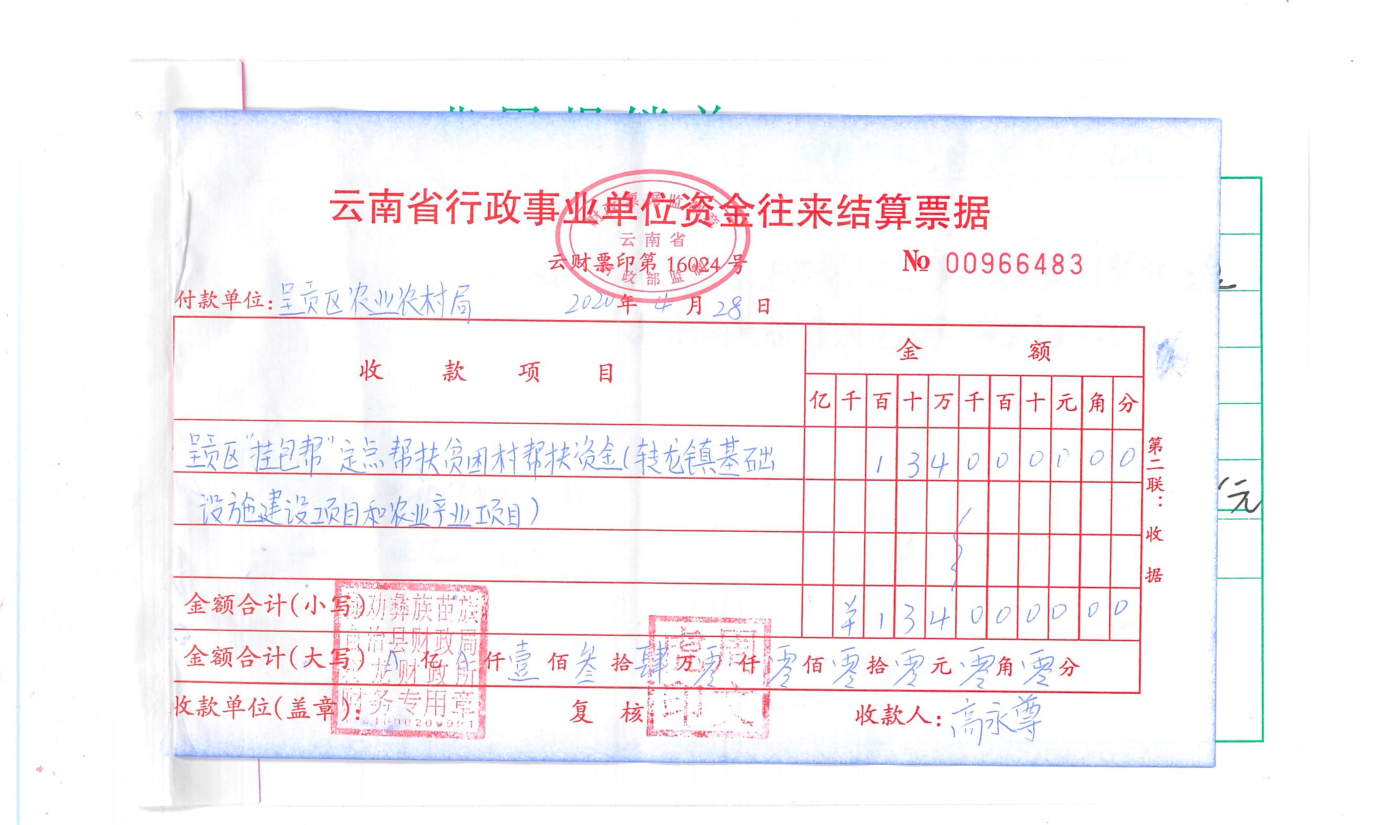 云南省行政事业单位资金往来结算票据
云南省
云财票印第 16024 号
№ 00966483
付款单位:呈贡区农业农村局 2020年 4 月 28 日
收款项目 金额
亿 千 百 十 万 千 百 十 元 角 分
呈贡区"挂包帮"定点帮扶贫困村帮扶资金(转龙镇基础 1 3 4 0 0 0 0 0 0
设施建设项目和农业产业项目)
金额合计(小写) ¥ 1 3 4 0 0 0 0 0 0
金额合计(大写) 亿 仟 壹 佰 叁 拾 肆 万 零 仟 零 佰 零 拾 零 元 零 角 零 分
收款单位(盖章): 复核 收款人:高永尊
劝彝族苗族
治县财政局
龙财政所
财务专用章
第二联:收据
元